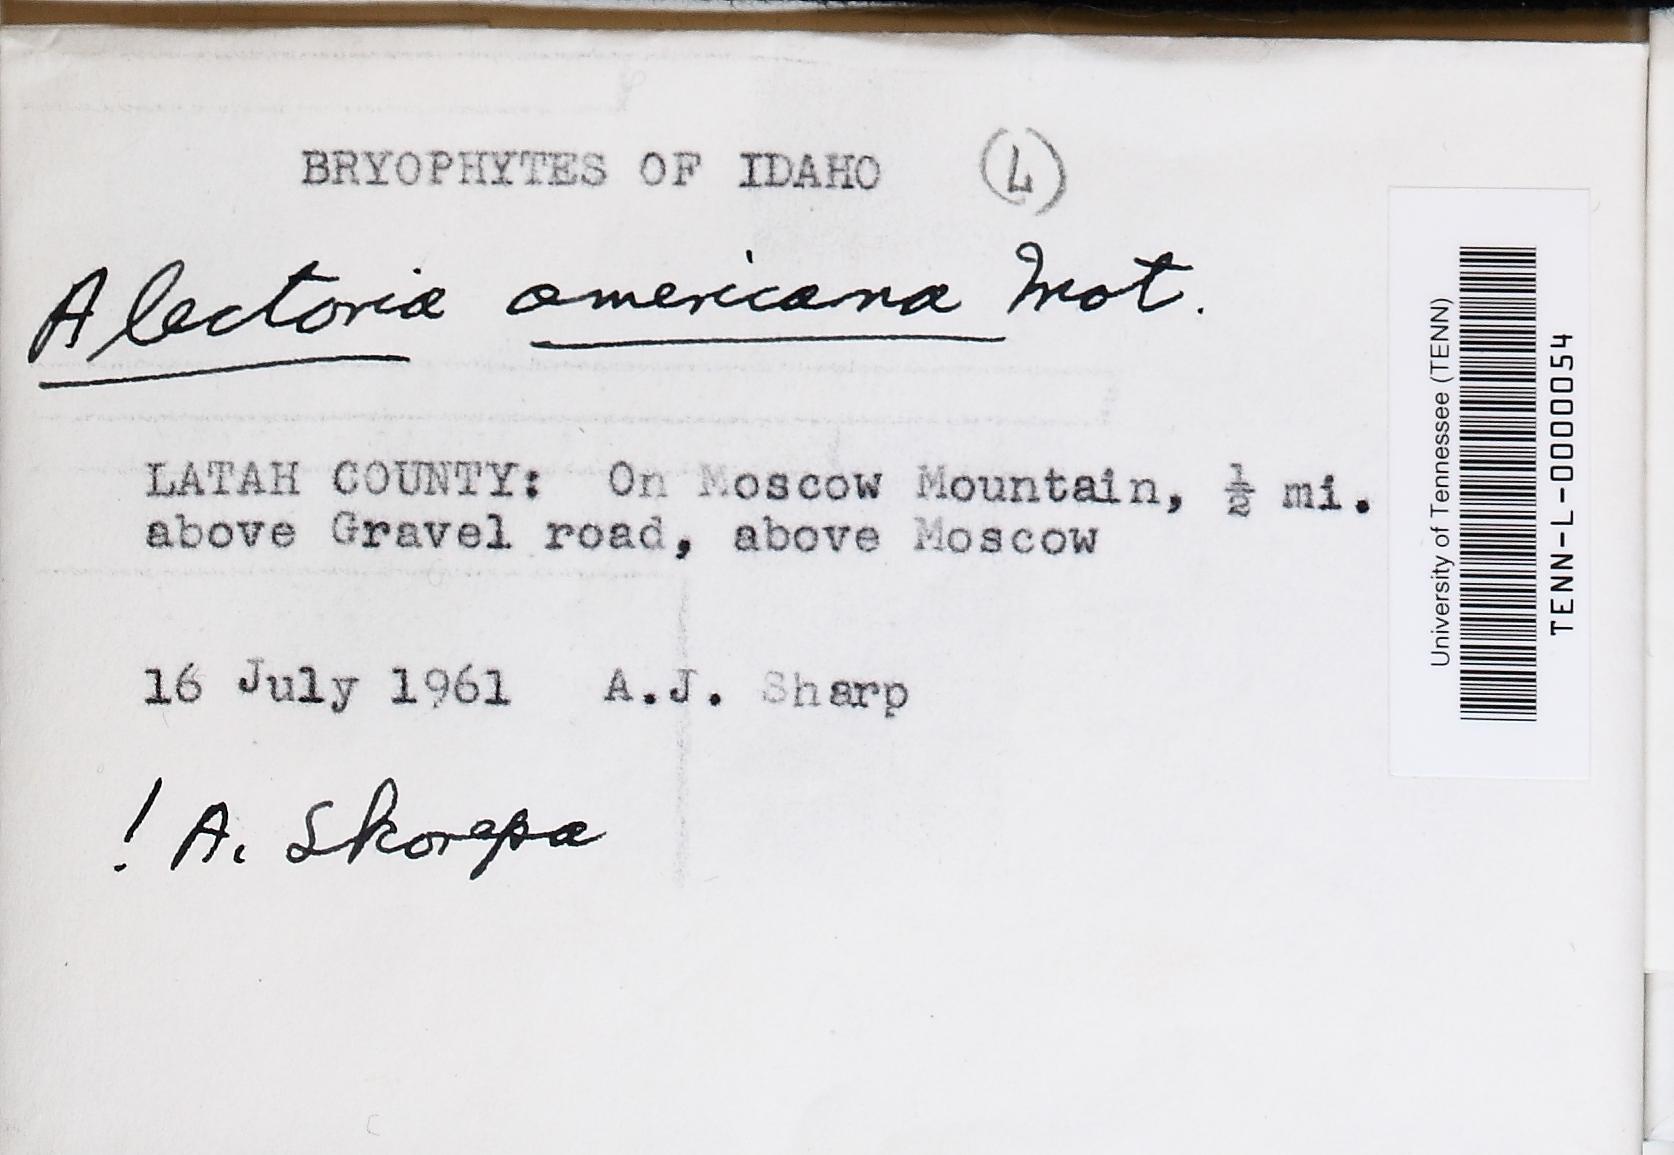 BRYOPHYTES OF IDAHO (L)
Alectoria americana Mot.
LATAH COUNTY: On Moscow Mountain, ½ mi.
above Gravel road, above Moscow
16 July 1961 A.J. Sharp
! A. Skorepa
University of Tennessee (TENN)
TENN-L-0000054